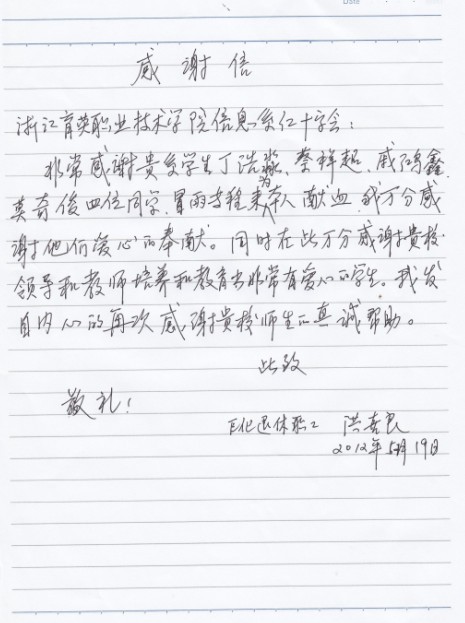 Date
感谢信
浙江育英职业技术学院信息系红十字会：
非常感谢贵系学生丁浩淼、蔡祥超、戚鸿鑫、
莫奇俊四位同学，冒雨专程来为本人献血，我万分感
谢他们爱心的奉献。同时在此万分感谢贵校
领导和教师培养和教育出非常有爱心的学生。我发
自内心的再次感谢贵校师生的真诚帮助。
此致
敬礼！
巨化退休职工 洪
2012年5月19日